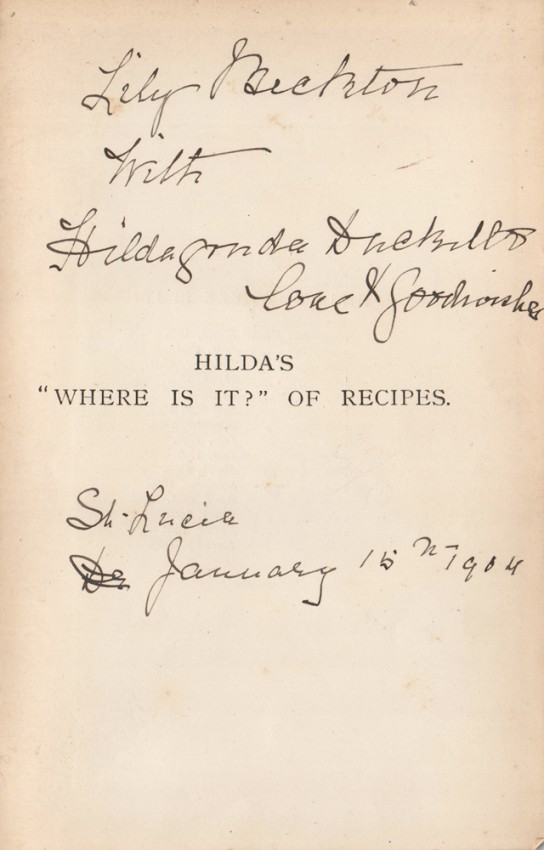 Lily Beckton
With
Hildagonda Duckitt's
Love & Goodwishes
HILDA'S
"WHERE IS IT?" OF RECIPES.
St. Lucia
January 15th 1904